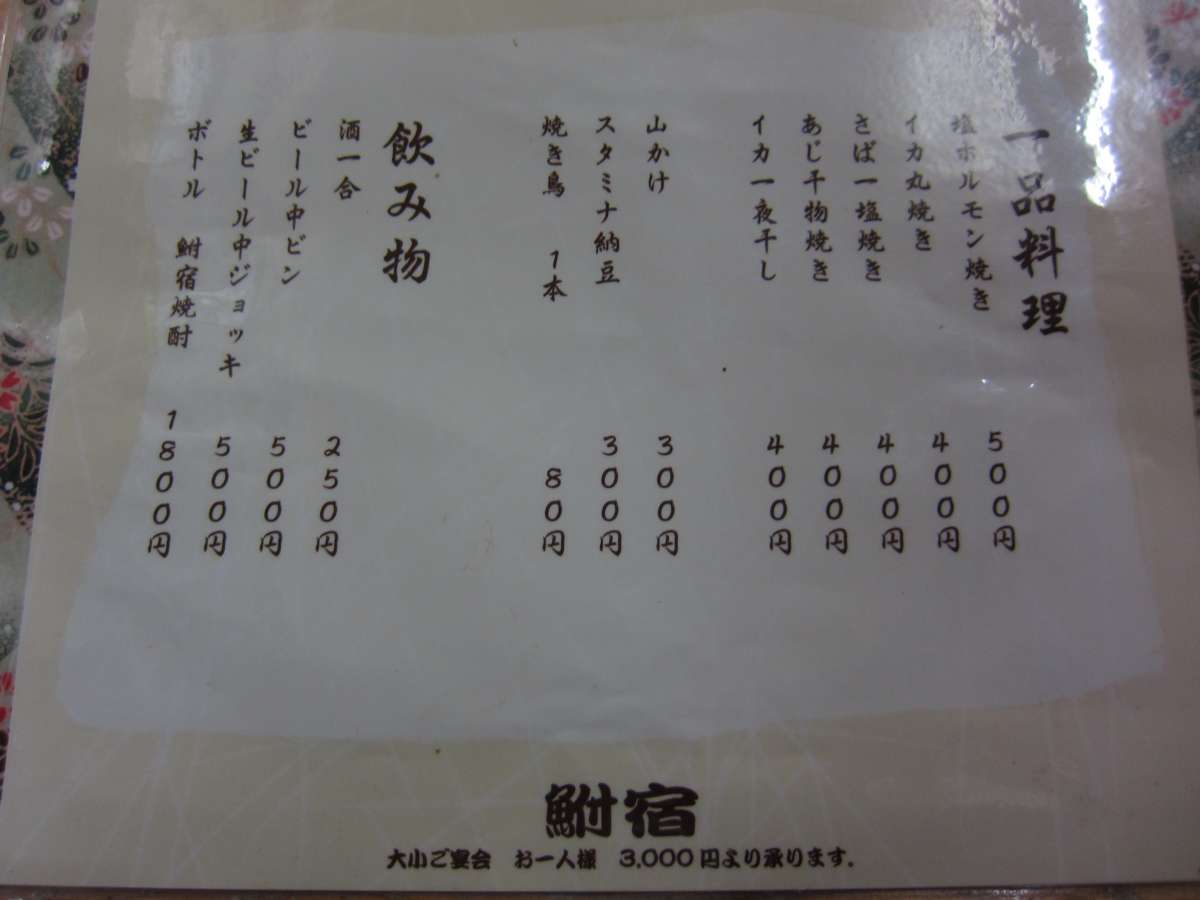 一品料理
塩ホルモン焼き 500円
イカ丸焼き 400円
さば一塩焼き 400円
あじ干物焼き 400円
イカ一夜干し 400円
山かけ 300円
スタミナ納豆 300円
焼き鳥 1本 80円
飲み物
酒一合 250円
ビール中ビン 500円
生ビール中ジョッキ 500円
ボトル 鮒宿焼酎 1800円
鮒宿
大小ご宴会 お一人様 3,000円より承ります.